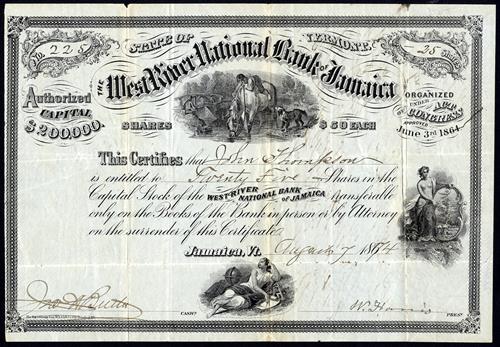 No. 225
STATE OF VERMONT.
25 Shares
THE West River National Bank of Jamaica
Authorized CAPITAL $200,000.
ORGANIZED UNDER ACT OF CONGRESS APPROVED June 3rd 1864
SHARES $50 EACH
This Certifies that John Thompson
is entitled to Twenty Five Shares in the
Capital Stock of the WEST-RIVER NATIONAL BANK OF JAMAICA transferable
only on the Books of the Bank in person or by Attorney
on the surrender of this Certificate
Jamaica, Vt. August 7 1874
CASHR
PREST